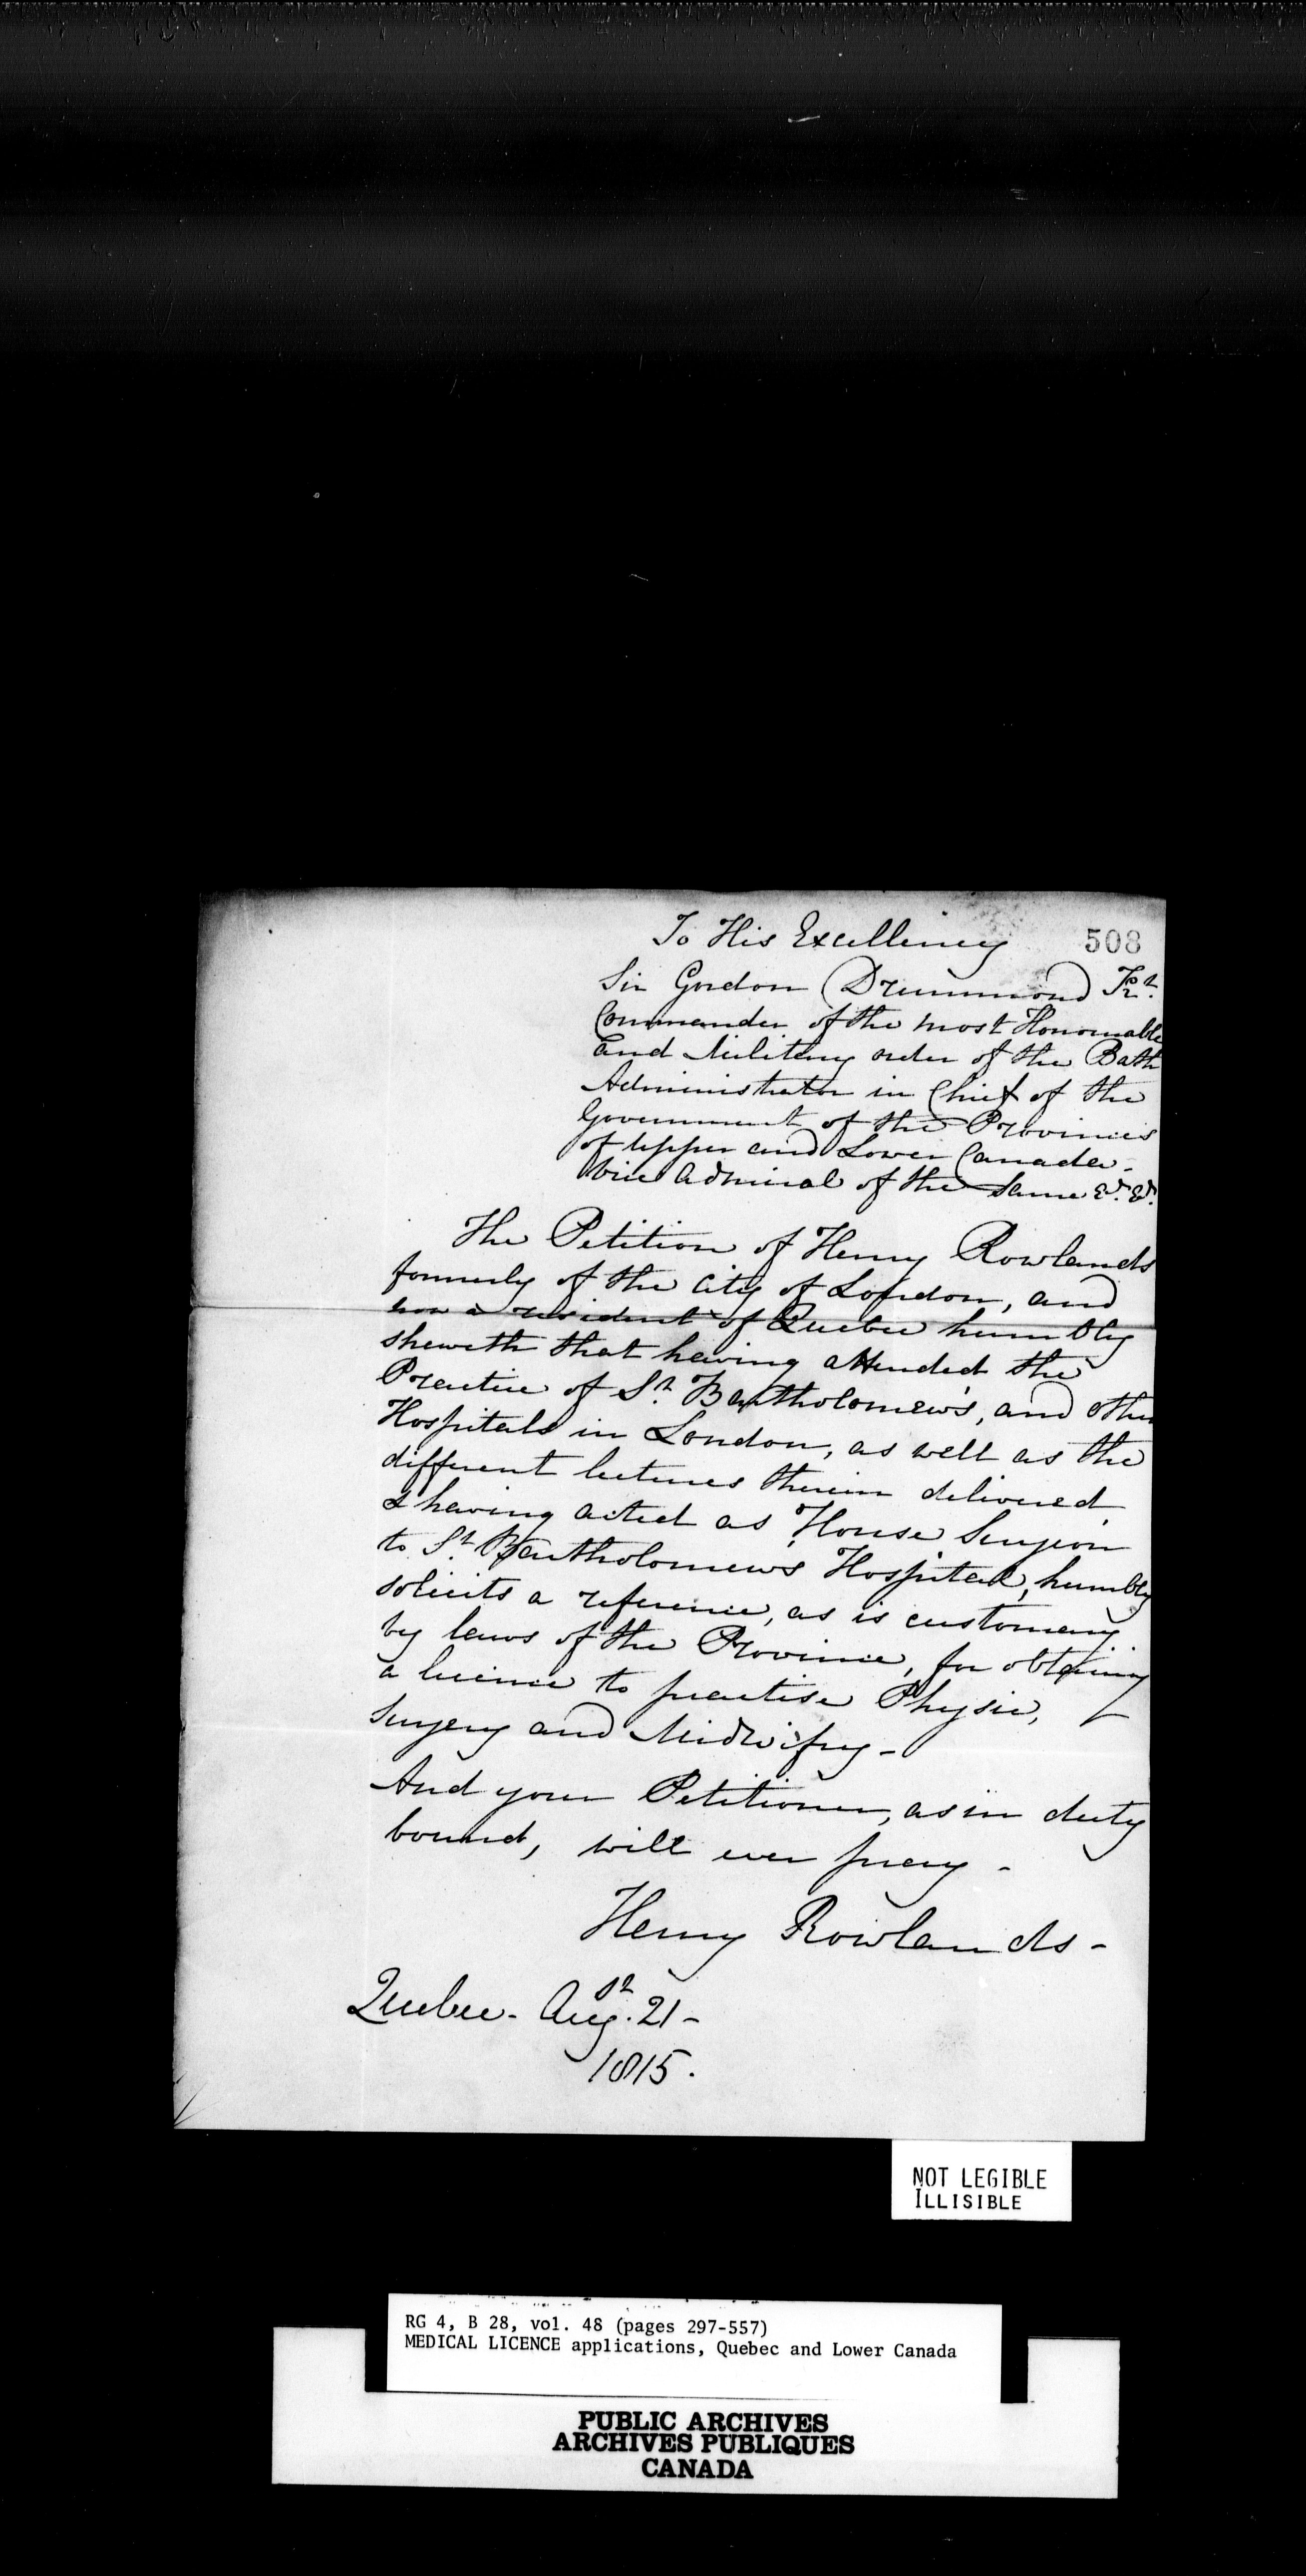 508
To His Excellency
Sir Gordon Drummond Kt.
Commander of the most Honourable
and Military order of the Bath
Administrator in Chief of the
Government of the Provinces
of Upper and Lower Canada -
Vice Admiral of the same &c. &c.
The Petition of Henry Rowlands
formerly of the City of London, and
now a resident of Quebec humbly
sheweth that having attended the
Practice of St. Bartholomew's, and other
Hospitals in London, as well as the
different lectures therein delivered
& having acted as House Surgeon
to St. Bartholomews Hospital, humbly
solicits a reference, as is customary
by laws of the Province, for obtaining
a licence to practise Physic,
Surgery and Midwifry -
And your Petitioner, as in duty
bound, will ever pray -
Henry Rowlands -
Quebec - Augst. 21 -
1815.
NOT LEGIBLE
ILLISIBLE
RG 4, B 28, vol. 48 (pages 297-557)
MEDICAL LICENCE applications, Quebec and Lower Canada
PUBLIC ARCHIVES
ARCHIVES PUBLIQUES
CANADA